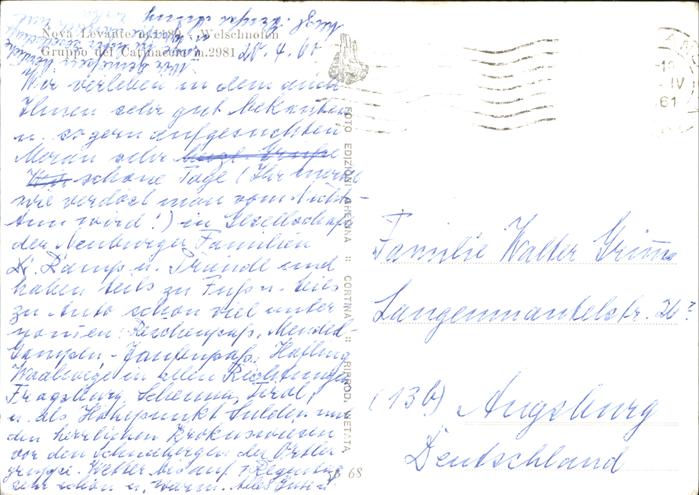 Nova Levante m.1180 - Welschnofen
Gruppo del Catinaccio m.2981
Wir verleben in dem auch
Ihnen sehr gut bekannten
u. so gern aufgesuchten
Meran sehr
schöne Tage (Ihr
wie verdöst man vom Nichts-
tun wird!) in Gesellschaft
der Neuburger Familien
Dr. u. und
haben teils zu Fuß u. teils
zu Auto schon viel unter
nommen: Mendel-
Gampen - Jaufenpaß, Hafling
Waalwege in allen Richtungen
Fragsburg, Schenna, Tirol,
u. als Höhepunkt Sulden, mit
den herrlichen Krokuswiesen
vor den Schneebergen der Ortler
gruppe. Wetter bis auf 1 Regentag
sehr schön u. warm. Alles
FOTO EDIZIONI GHEDINA :: CORTINA :: RIPROD. VIETATA
68
IV
61
Familie Walter Grimm
Langenmantelstr.
(13b) Augsburg
Deutschland